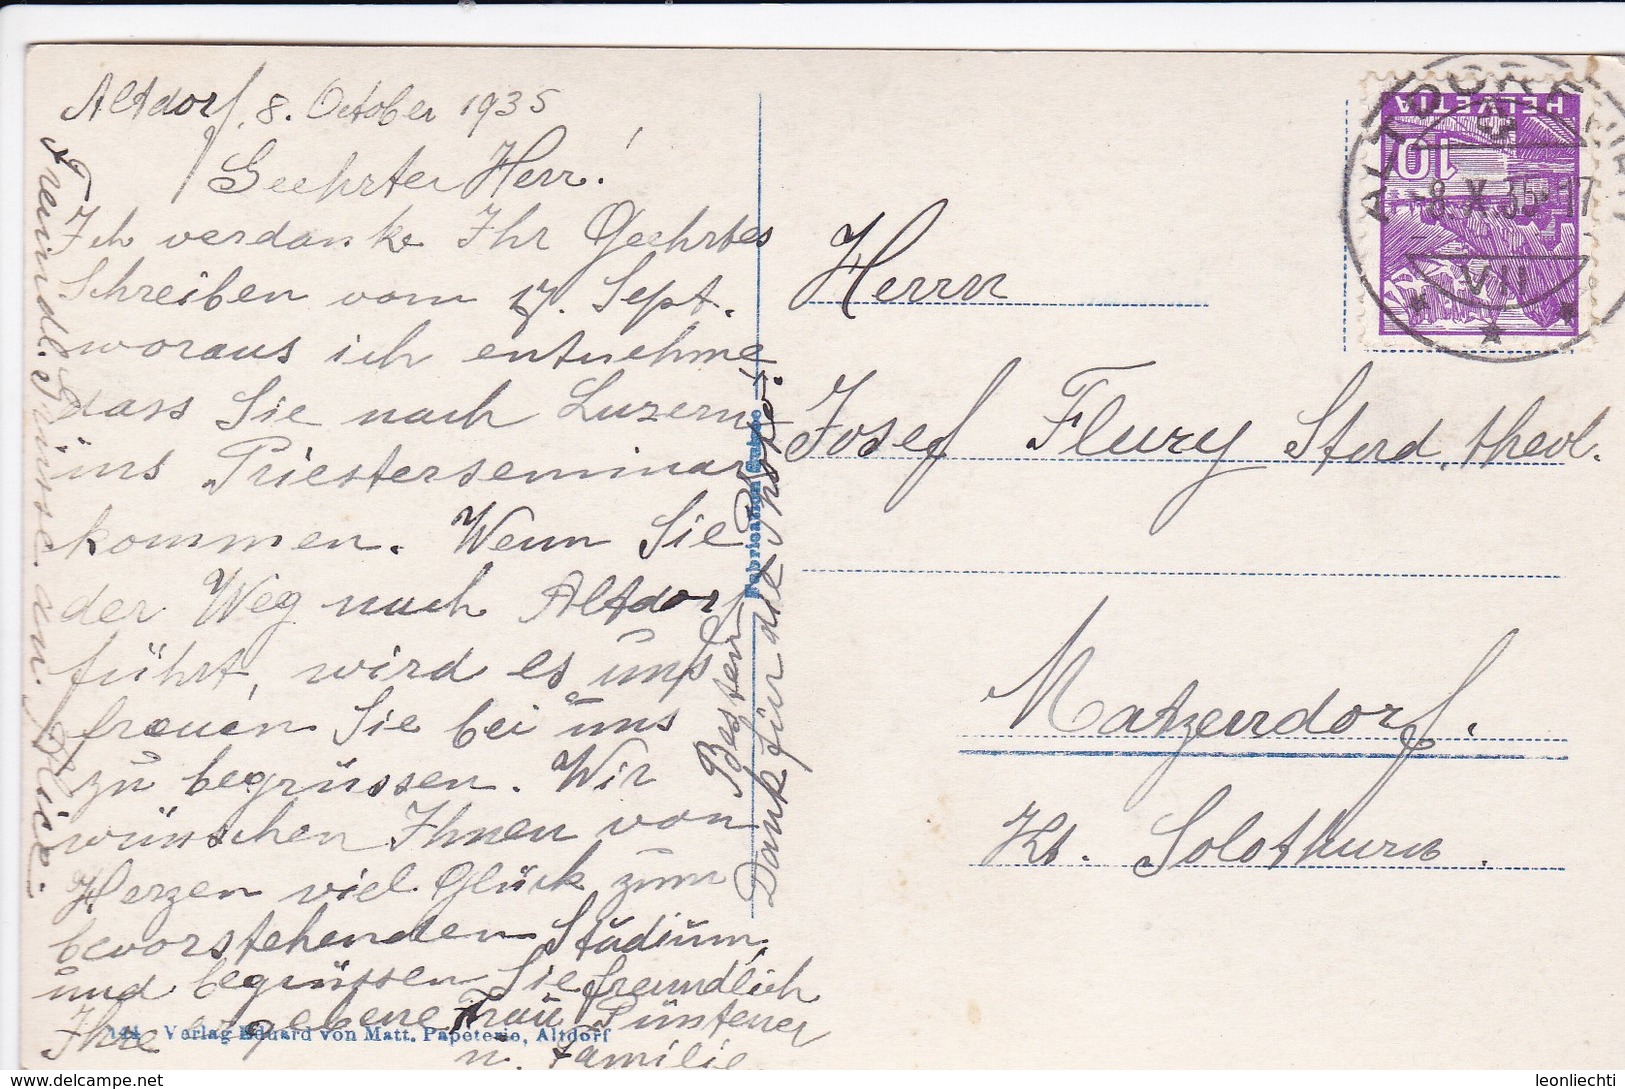 Altdorf, 8. October 1935
Geehrter Herr!
Ich verdanke Ihr Geehrtes
Schreiben vom 17. Sept.
woraus ich entnehme
dass Sie nach Luzern
ins Priesterseminar
kommen. Wenn Sie
der Weg nach Altdorf
führt, wird es uns
freuen Sie bei uns
zu begrüssen. Wir
wünschen Ihnen von
Herzen viel Glück zum
bevorstehenden Studium,
und begrüssen Sie freundlich
Ihre ergebene Frau Püntener
u. Familie.
Freundl. Grüsse an Alice.
Besten
Dank für die Photo.
Fabrication Suisse
144 Verlag Eduard von Matt, Papeterie, Altdorf
HELVETIA
10
ALTDORF (URI)
-8.X.35-17
VII
Herrn
Josef Flury Stud. theol.
Matzendorf.
Kt. Solothurn.
leonliechti